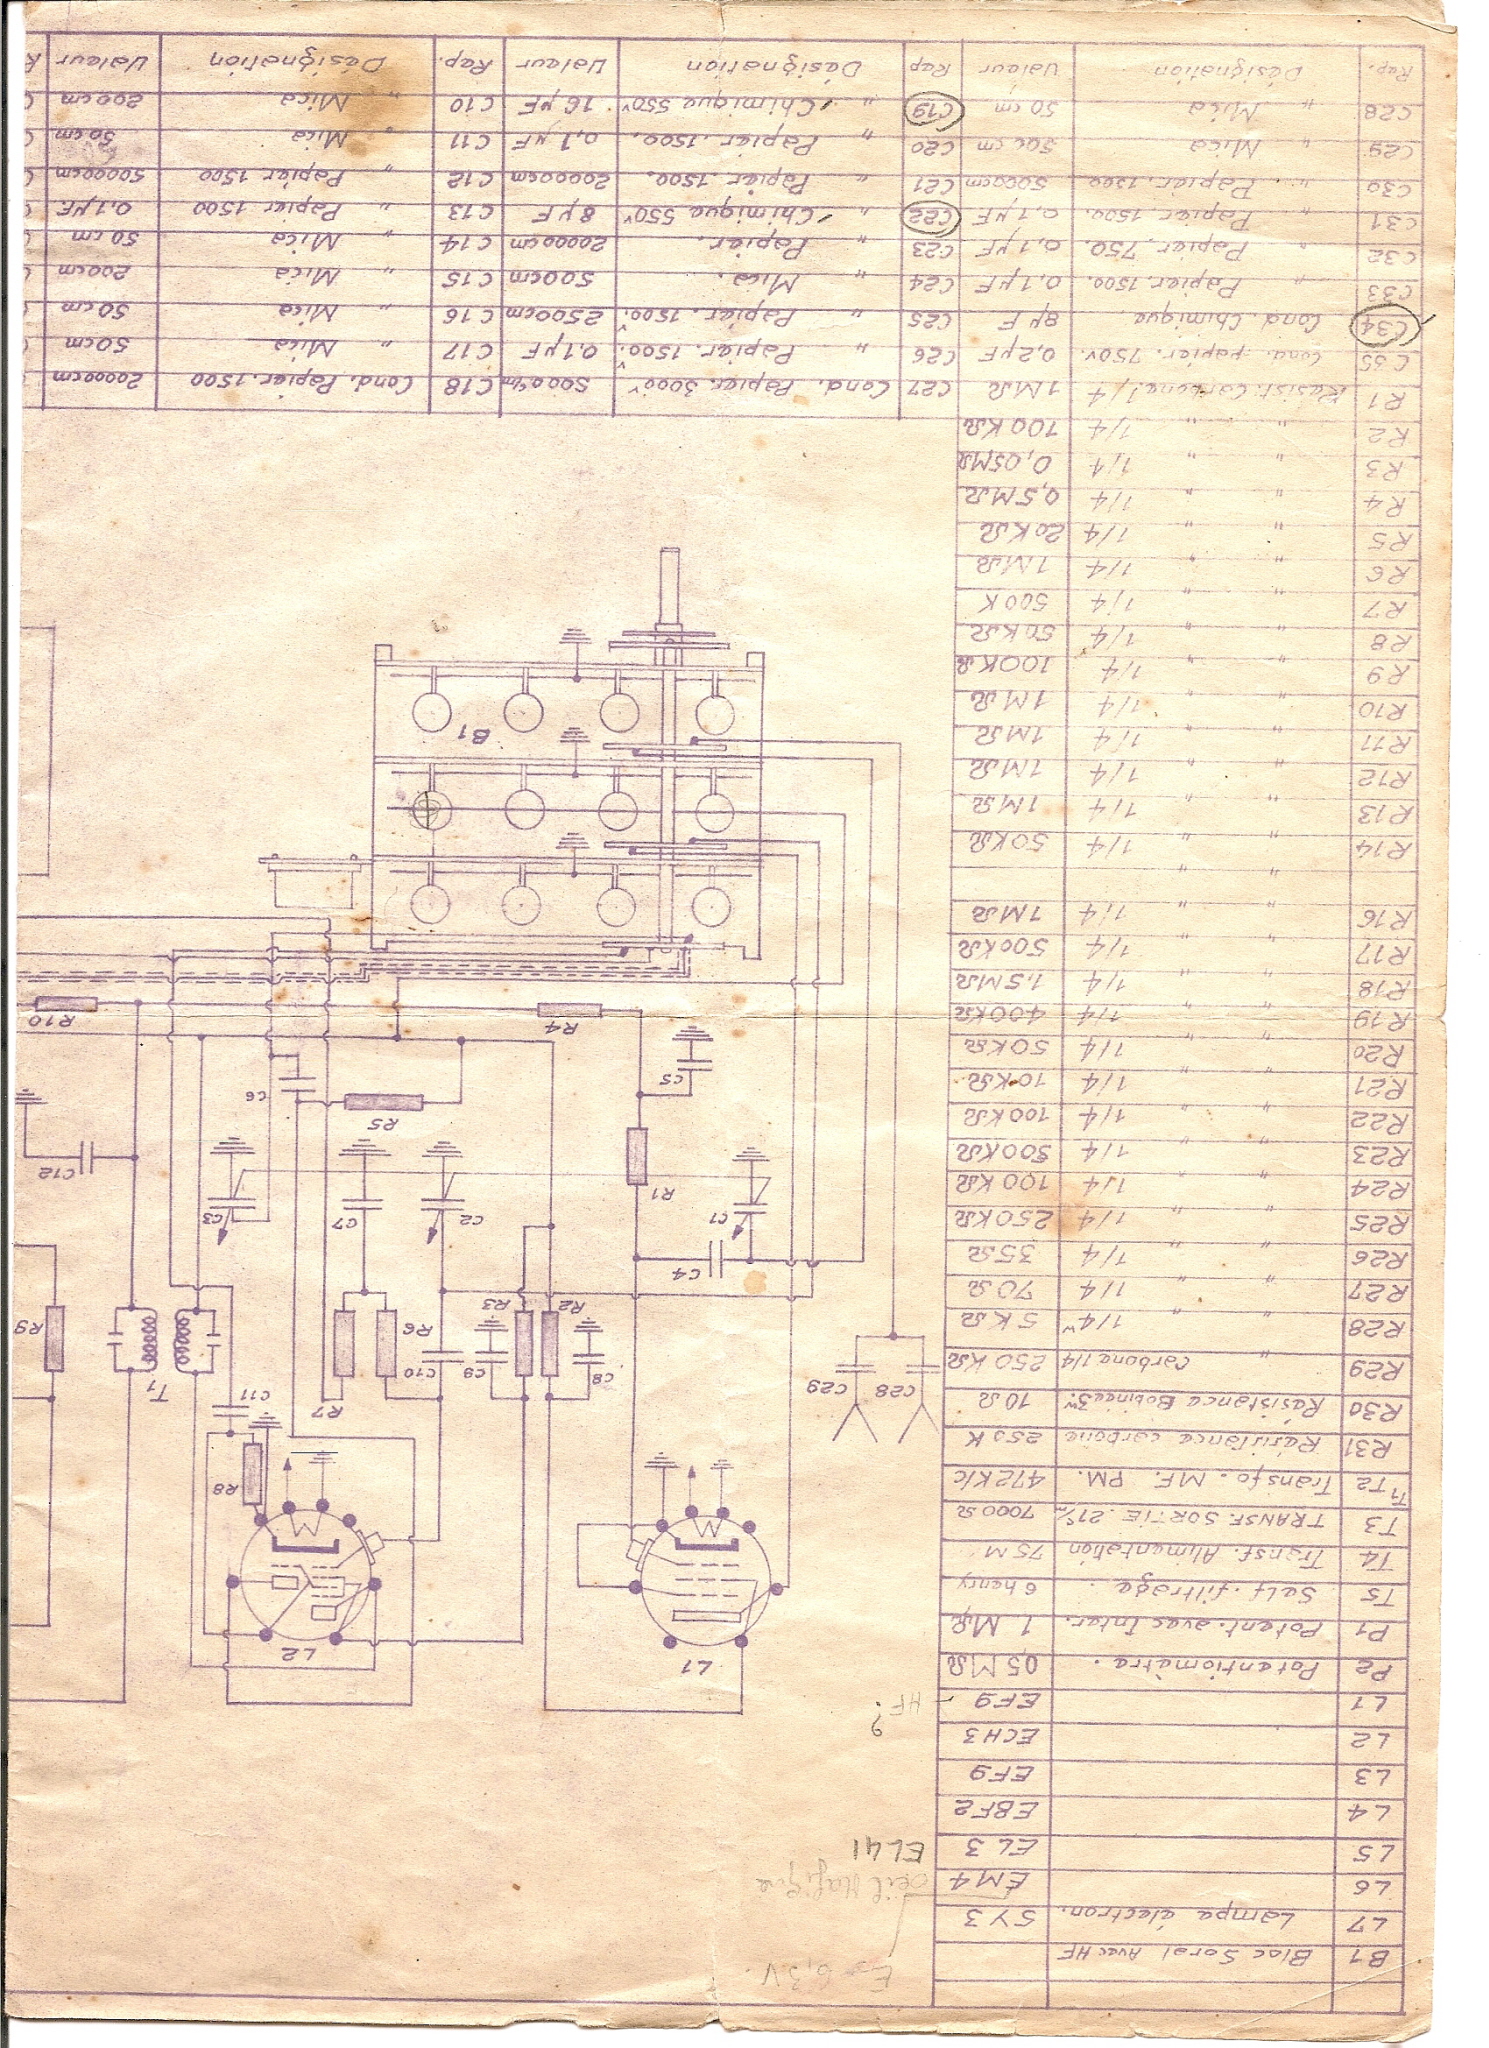 B1 Bloc Soral Avec HF
L7 Lampe électron. 5Y3
L6 EM4
L5 EL 3
L4 EBF2
L3 EF9
L2 ECH3
L1 EF9
P2 Potentiomètre. 05 MΩ
P1 Potent. avec Inter. 1 MΩ
T5 Self. filtrage. 6 henry
T4 Transf. Alimentation 75 M
T3 TRANSF. SORTIE. 21% 7000 Ω
T1 T2 Transfo. MF. PM. 472 K/c
R31 Résistance carbone 250 K
R30 Résistance Bobinée 3w. 10 Ω
R29 " Carbone 1/4 250 KΩ
R28 " " 1/4w 5 KΩ
R27 " " 1/4 70 Ω
R26 " " 1/4 35 Ω
R25 " " 1/4 250 KΩ
R24 " " 1/4 100 KΩ
R23 " " 1/4 500 KΩ
R22 " " 1/4 100 KΩ
R21 " " 1/4 10 KΩ
R20 " " 1/4 50 KΩ
R19 " " 1/4 400 KΩ
R18 " " 1/4 1,5 MΩ
R17 " " 1/4 500 KΩ
R16 " " 1/4 1 MΩ
" "
R14 " " 1/4 50 KΩ
R13 " " 1/4 1 MΩ
R12 " " 1/4 1 MΩ
R11 " " 1/4 1 MΩ
R10 " " 1/4 1 MΩ
R9 " " 1/4 100 KΩ
R8 " " 1/4 50 KΩ
R7 " " 1/4 500 K
R6 " " 1/4 1 MΩ
R5 " " 1/4 20 KΩ
R4 " " 1/4 0,5 MΩ
R3 " " 1/4 0,05 MΩ
R2 " " 1/4 100 KΩ
R1 Résist. Carbone 1/4 1 MΩ
C35 Cond. papier. 750v. 0,2 µF
C34 Cond. Chimique. 8 µF
C33 " Papier. 1500. 0,1 µF
C32 " Papier. 750. 0,1 µF
C31 " Papier. 1500. 0,1 µF
C30 " Papier. 1500.
C29 " Mica 500 cm
C28 " Mica 50 cm
Rep. Désignation Valeur
6,3 V.
Oeil Magique
EL 41
HF ?
L1
L2
C28
C29
R8
C11
T1
R7
C8
C9
C10
R2
R3
R6
R9
C4
C1
C2
C7
C3
R1
C12
R5
C6
C5
R4
R10
B1
C27 Cond. Papier 3000v 5000 cm
C26 " Papier. 1500v. 0,1 µF
C25 " Papier. 1500v. 2500 cm
C24 " Mica. 500 cm
C23 " Papier. 20000 cm
C22 " Chimique 550v 8 µF
C21 " Papier. 1500. 20000 cm
C20 " Papier. 1500. 0,1 µF
C19 " Chimique 550v 16 µF
Rep Désignation Valeur
C18 Cond. Papier. 1500 20000 cm
C17 " Mica 50 cm
C16 " Mica 50 cm
C15 " Mica 200 cm
C14 " Mica 50 cm
C13 " Papier 1500 0,1 µF
C12 " Papier 1500 50000 cm
C11 " Mica 50 cm
C10 " Mica 200 cm
Rep. Désignation Valeur